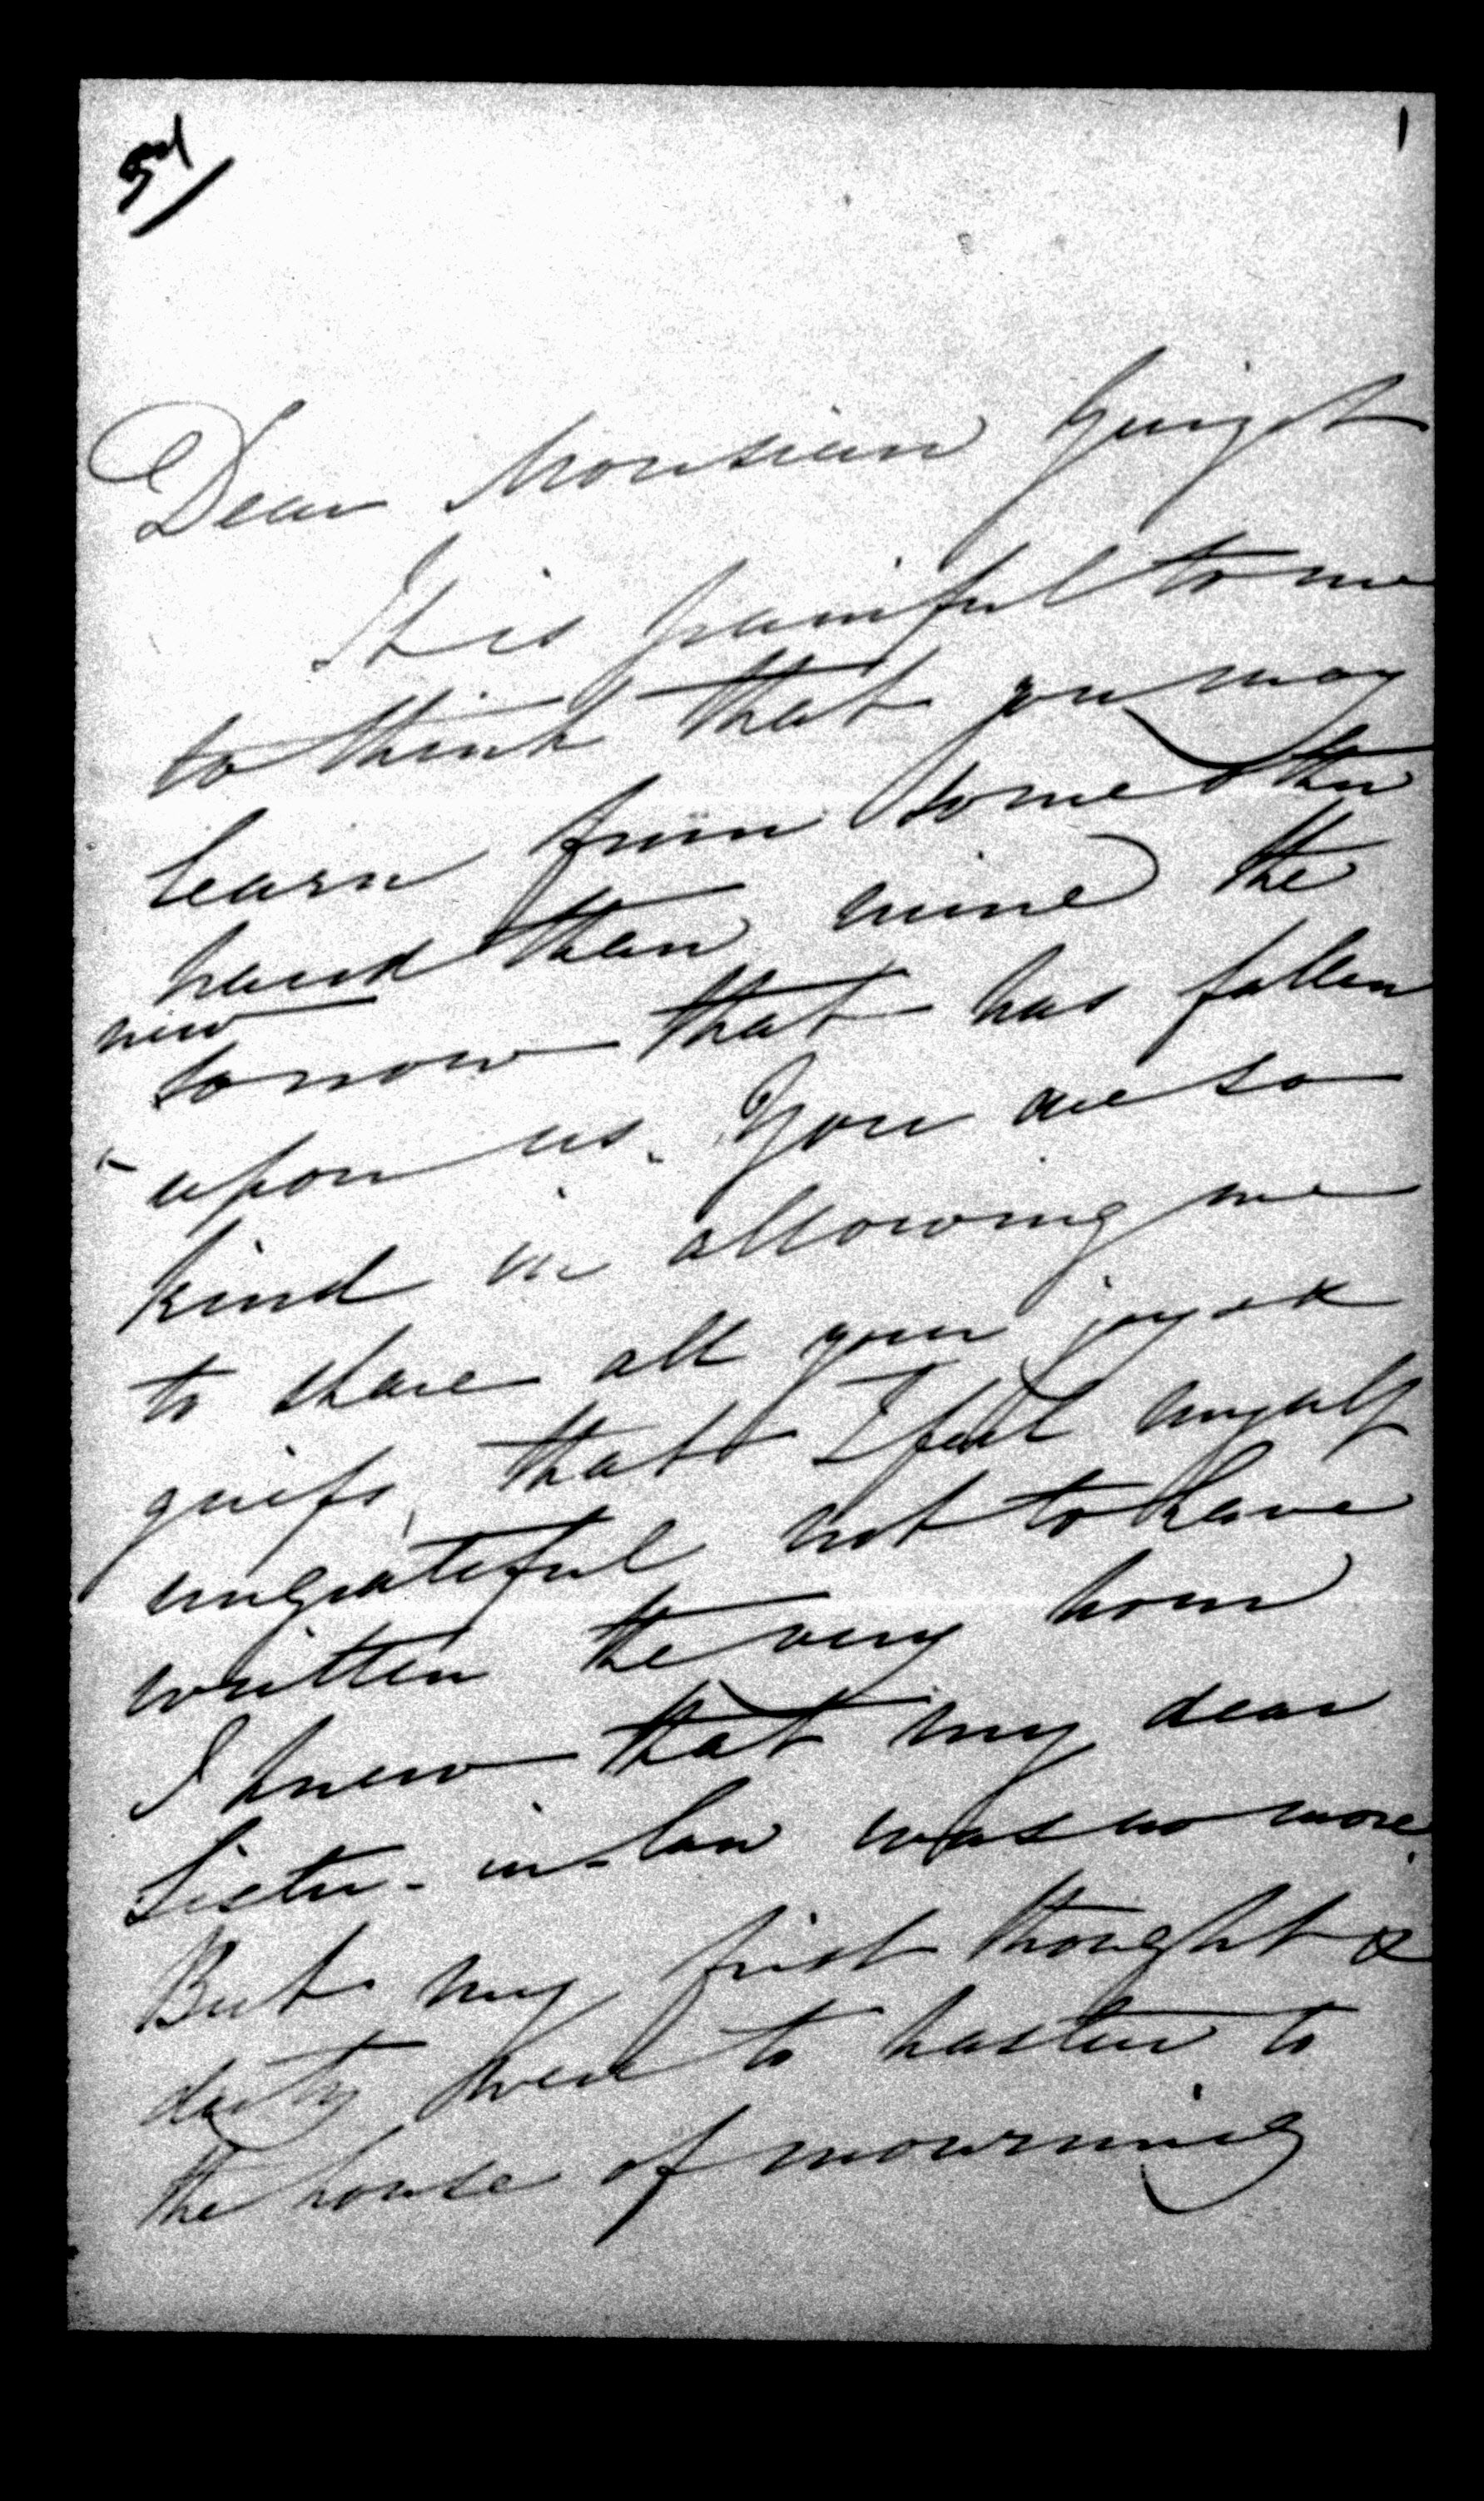 1
Dear Monsieur Guizot
It is painful to me
to think that you may
learn from some other
hand than mine the
new
sorrow that has fallen
upon us. You are so
kind in allowing me
to share all your joys &
griefs, that I feel myself
ungrateful not to have
written the very hour
I knew that my dear
Sister-in-law was no more.
But my first thought &
duty were to hasten to
the house of mourning